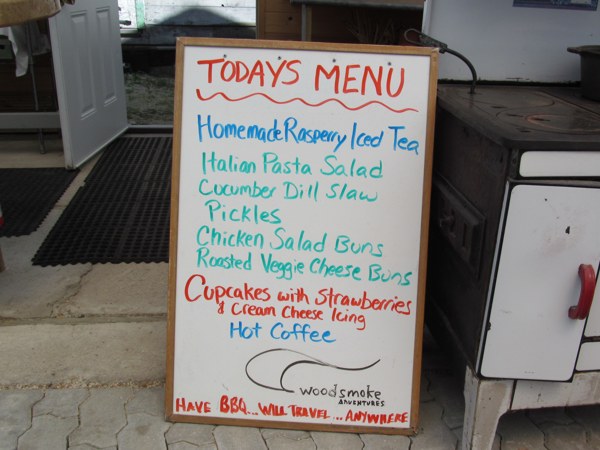 TODAYS MENU
Homemade Rasperry Iced Tea
Italian Pasta Salad
Cucumber Dill Slaw
Pickles
Chicken Salad Buns
Roasted Veggie Cheese Buns
Cupcakes with Strawberries
& Cream Cheese Icing
Hot Coffee
woodsmoke
ADVENTURES
HAVE BBQ...WILL TRAVEL...ANYWHERE